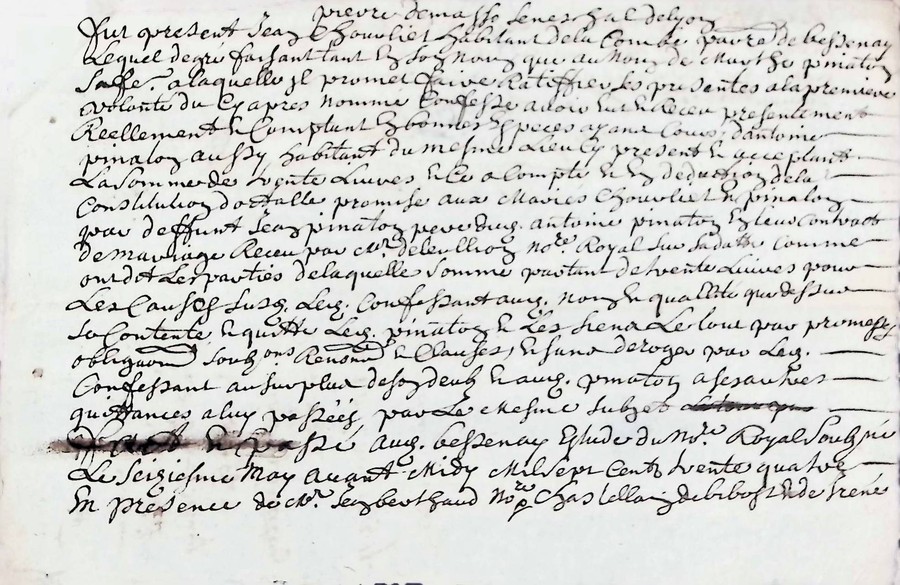 pierre demasso seneschal delyon
fut present Jean Chouvliet habitant dela Combe parre de bessenay
Lequel degre faisant tant En son Nom que au Nom de Marthe pinaton
Saffe. alaquelle Jl promet faire Ratiffier les presentes ala premiere
volonte du Cy apres Nomme Confesse avoir Eut et Receu presentement
Reellement et Comptant En bonnes Especes ayant Cours, dantoine
pinaton aussy habitant du mesme Lieu Cy present et acceptant
La somme de trente Livres et Ce a Compte et En deduction dela
Constitution dottalle promise aux Maries Chouvliet et pinaton
par deffunt Jean pinaton pere dud. antoine pinaton En leur Contract
de mariage Receu par Mr. No.re Royal sur sa datte Comme
ont dit Les parties de laquelle somme partant de trente Livres pour
Les Causes susd. Led. Confessant aud. Nom et quallite que dessus
se Contente et quitte Led. pinaton et Les siens Le tout par promesses
obligaons soubzons Renons et Clauses, et sans deroger par Led.
Confessant au surplus de son deub et aud. pinaton a ses autres
quittances a luy passées, par Le mesme subjet
fait et passé aud. bessenay Estude du No.re Royal soubzne
Le seiziesme May avant Midy Mil sept Cents trente quatre
En presence de Mr. Jean berthaud No.re Chastellain de bibost et de Irené